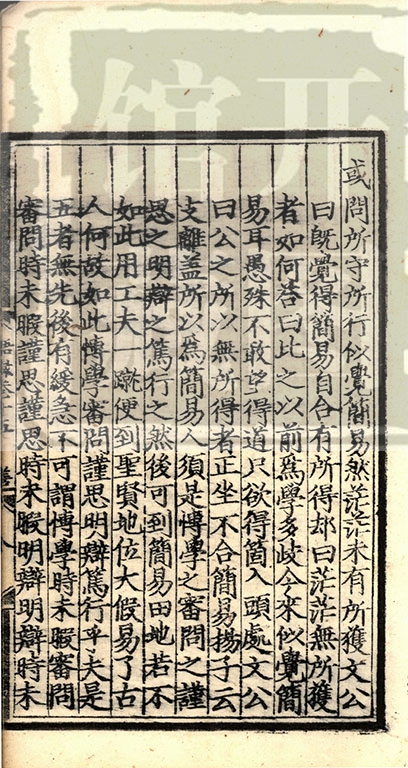 或問所守所行似覺簡易然茫茫未有所獲文公
曰既覺得簡易自合有所得却曰茫茫無所獲
者如何荅曰此之以前為學多歧今來似覺簡
易耳愚殊不敢望得道只欲得箇入頭處文公
曰公之所以無所得者正坐不合簡易揚子云
支離盖所以為簡易人須是博學之審問之謹
思之明辯之篤行之然後可到簡易田地若不
如此用工夫一蹴便到聖賢地位大假易了古
人何故如此博學審問謹思明辯篤行乎夫是
五者無先後有緩急不可謂博學時未暇審問
審問時未暇謹思謹思時未暇明辯明辯時未